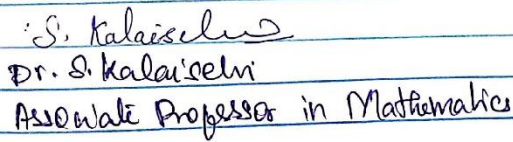 S. Kalaiselvi
Dr. S. Kalaiselvi
Associate Professor in Mathematics